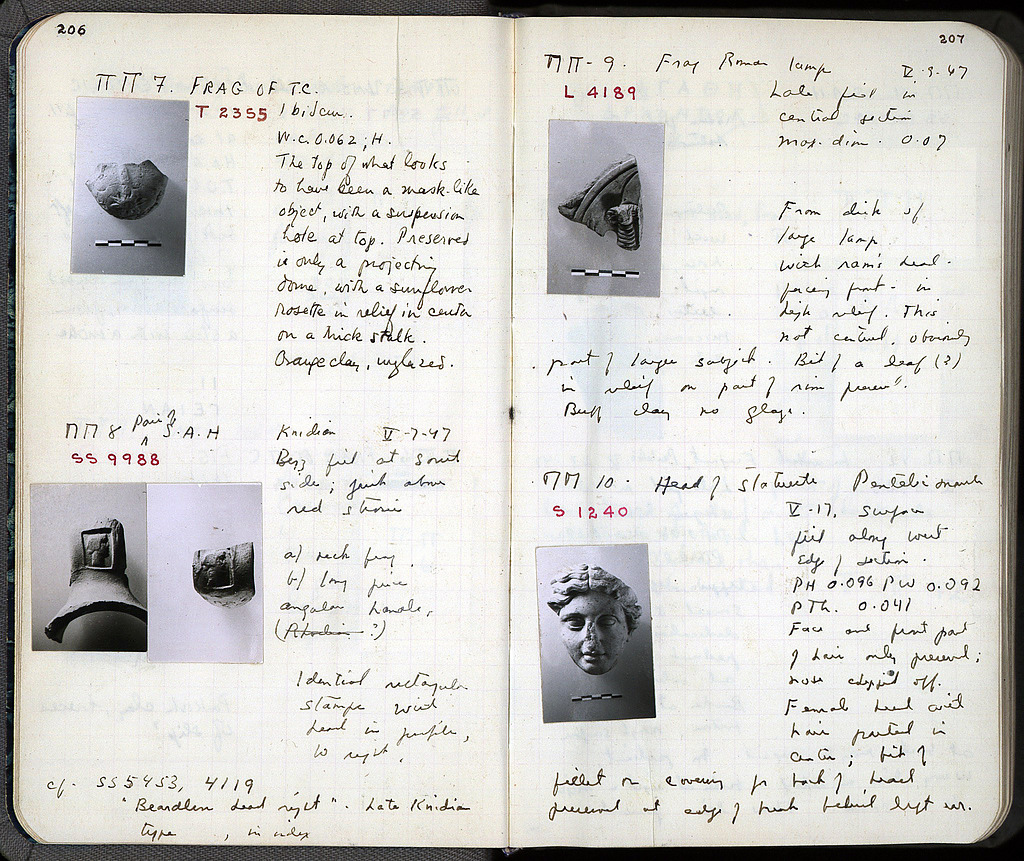 206
ΠΠ 7. FRAG OF T.C.
T 2355 Ibidem.
W.c. 0.062; H.
The top of what looks
to have been a mask-like
object, with a suspension
hole at top. Preserved
is only a projecting
dome, with a sunflower
rosette in relief in center
on a thick stalk.
Orange clay, unglazed.
ΠΠ 8 Pair of S.A.H Knidian V-7-47
SS 9988
fill at South
side; just above
red stratum
a) neck frag.
b) long piece
angular handle,
(Rhodian ?)
Identical rectangular
stamps with
head in profile,
to right.
cf. SS 5453, 4119
"Beardless head right". Late Knidian
type , in index
207
ΠΠ-9. Frag Roman lamp V-9-47
L 4189 Late fill in
central section
max. dim. 0.07
From disk of
large lamp
with ram's head
facing front - in
high relief. This
not central, obviously
part of larger subject. Bit of a leaf (?)
in relief on part of rim preserv'd.
Buff clay no glaze.
ΠΠ 10. Head of statuette Pentelic marble
S 1240 V-17, surface
fill along west
edge of section.
PH 0.096 PW 0.092
PTh. 0.041
Face and front part
of hair only preserved;
nose chipped off.
Female head with
hair parted in
center; bit of
fillet or covering for back of head
preserved at edge of break behind left ear.